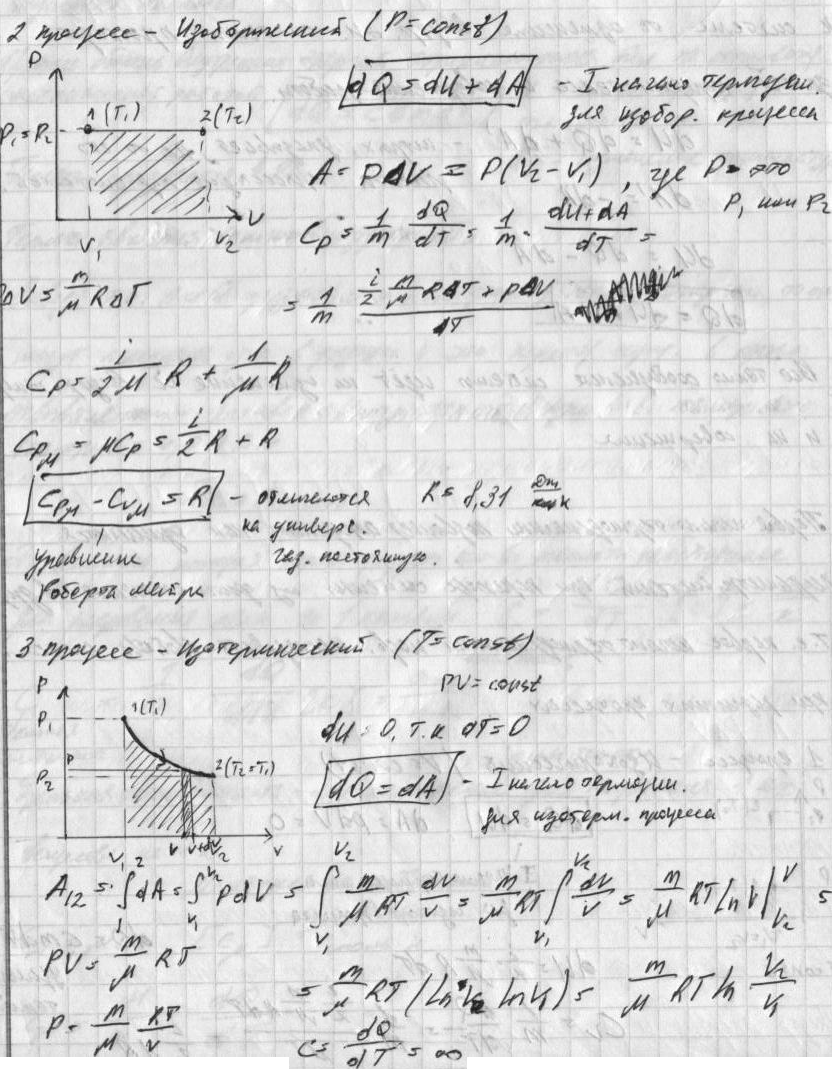 2 процесс – Изобарический (P = const)
P
dQ = dU + dA – I начало термодин.
для изобар. процесса
1 (T₁) 2 (T₂)
P₁ = P₂
A = PΔV = P(V₂ – V₁), где P – это
P₁ или P₂
V
V₁ V₂
Cp = 1/m · dQ/dT = 1/m · (dU + dA)/dT =
ΔV = m/μ RΔT
= 1/m · (i/2 m/μ RΔT + PΔV)/ΔT
Cp = i/2μ R + 1/μ R
Cpμ = μCp = i/2 R + R
Cpμ – Cvμ = R – отличаются
на универс
газ. постоянную.
R = 8,31 Дж/
уравнение
Роберта Мейра
3 процесс – Изотермический (T = const)
PV = const
P
P₁ 1 (T₁)
dU = 0, т.к dT = 0
P
P₂ 2 (T₂ = T₁)
dQ = dA – I начало термодин.
для изотерм. процесса
V₁ V V+dV V₂ V
A₁₂ = ∫₁² dA = ∫V₁V₂ PdV = ∫V₁V₂ m/μ RT dV/V = m/μ RT ∫V₁V₂ dV/V = m/μ RT ln V |V V₂ =
PV = m/μ RT
= m/μ RT (ln V₂ ln V₁) = m/μ RT ln V₂/V₁
P = m/μ RT/V
C = dQ/dT = ∞